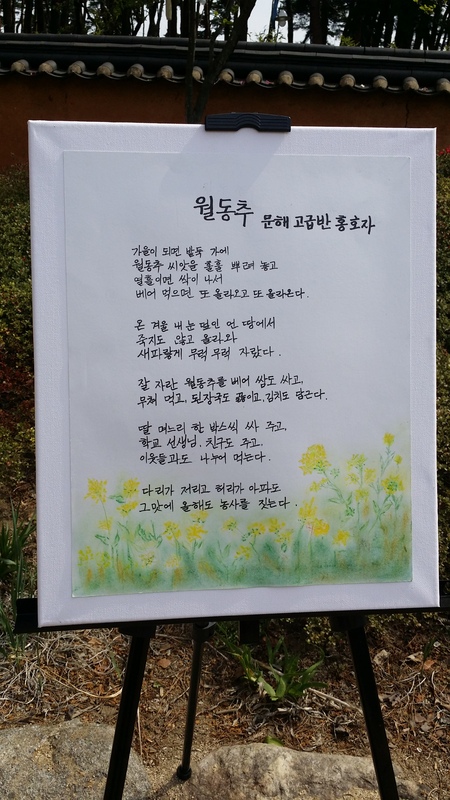 월동추 문해 고급반 홍호자
가을이 되면 밭둑 가에
월동추 씨앗을 훌훌 뿌려 놓고
열흘이면 싹이 나서
베어 먹으면 또 올라오고 또 올라온다.
온 겨울 내 눈 덮인 언 땅에서
죽지도 않고 올라와
새파랗게 무럭 무럭 자랐다.
잘 자란 월동추를 베어 쌈도 싸고,
무쳐 먹고, 된장국도 끓이고, 김치도 담근다.
딸 며느리 한 박스씩 싸 주고,
학교 선생님, 친구도 주고,
이웃들과도 나누어 먹는다.
다리가 저리고 허리가 아파도
그맛에 올해도 농사를 짓는다.